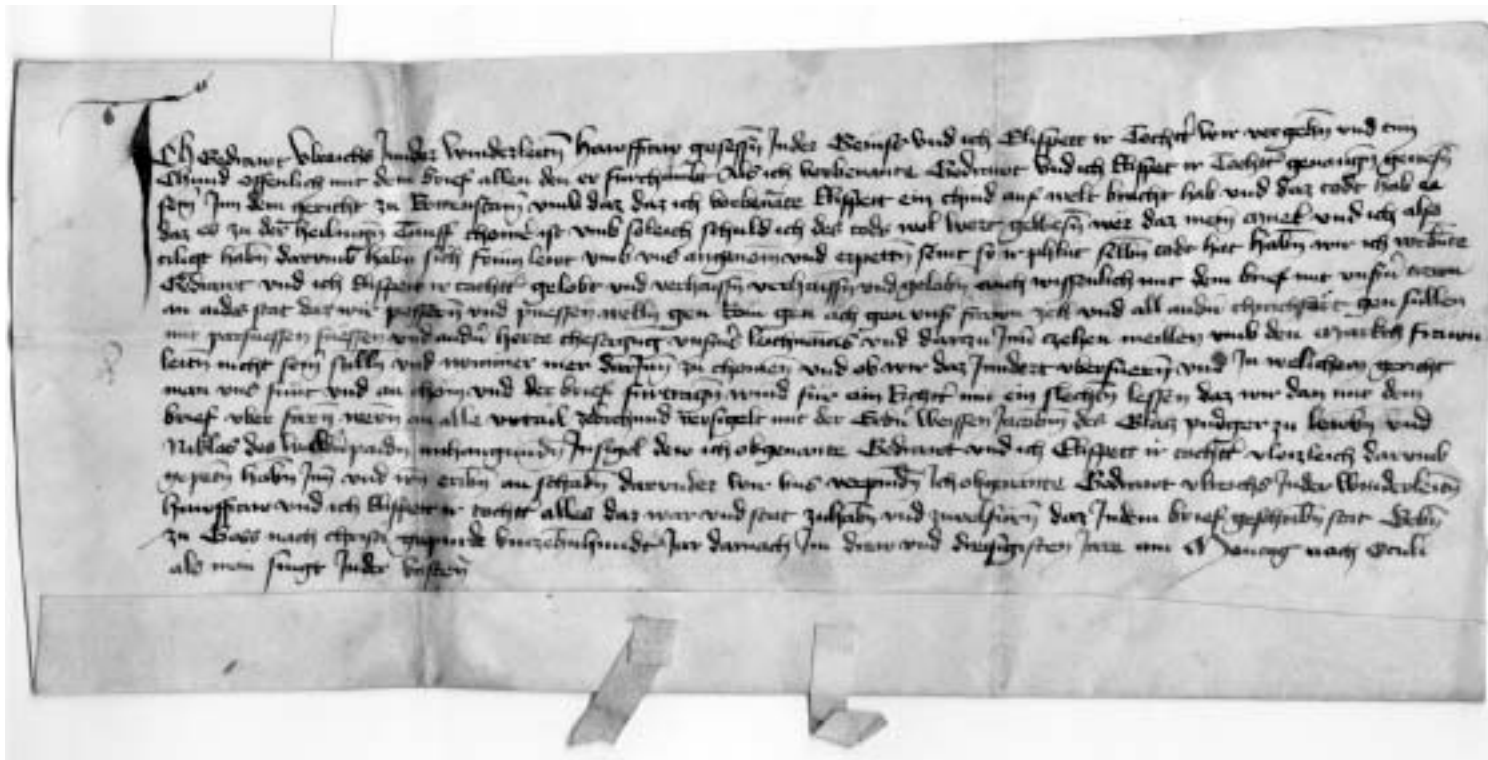 Ich Gedrawt Ulreichs Inder Winderleitn hawsfraw gesessn Inder Gemse und ich Elispett ir Tochter wir vergehn und tun
Chund offenlich mit dem brief allen den er furchumbt Als ich vorbenante Gedrawt und ich Elispet ir Tochter genangen gewesn
sein Inn dem gericht zu umb daz daz ich vorbenante Elispett ein chind auf welt bracht hab und daz todt hab ee
daz es zu der heiligen Tauff chomen ist umb soleich schuld ich des tods wol wert gewesn wer daz mein und ich also
habn darumb habn sich frum lewt umb uns angenom und erpettn seint so ir selbn todt hat habn wir ich
Gedrawt und ich Elispett ir tochter gelobt und verhaissn verhaissn und gelobn auch wissenlich mit dem brief mit unsern trewn
an aides stat daz wir pessern und puessen welln gen Rom gen ach gen unser frawn zell und all andern chirichfart gen sullen
mit parfuessen fuessen und andern herte unsers leichnams und darzu Inn czehen meillen umb den Markch frawn
leitn nicht sein sulln und nimmer mer darInn zu chomen und ob wir daz Inndert uberfuern und In welichem gericht
man uns fuint und an chom und der brief furtragn wuird fur ein Richter mit ein slechten lessen daz wir dan mit dem
brief uber furn wern an alle urtail und versigelt mit der Erbern weissen Jacobm des Glas purger zu Lewbn und
Niklas des anhangunden Insigel dew ich obgenante Gedrawt und ich Elispett ir tochter vleizleich darumb
gepetn habn Inn und irn eribn an schadn darunder wir uns verpindn Ich obgenante Gedrawt Ulreichs Inder Winderleitn
hawsfraw und ich Elispett ir tochter alles daz war und stat zuhabn und zuvolfurn daz Indem brief geschribn stat Gebn
zu Goss nach christi gepurde virczehnhundert Jar darnach Im drew und dreissigisten Jare am nach Oculi
als man singt Inder vasten